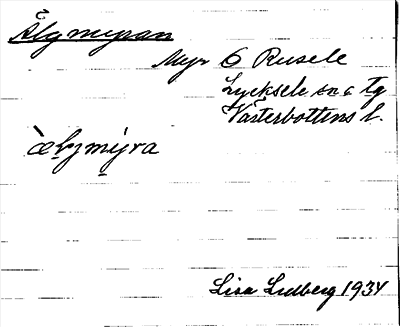 Älgmyran
Myr Ö Rusele
Lycksele sn o tg
Västerbottens l.
æl̥gmýra
Lisa Lidberg 1934